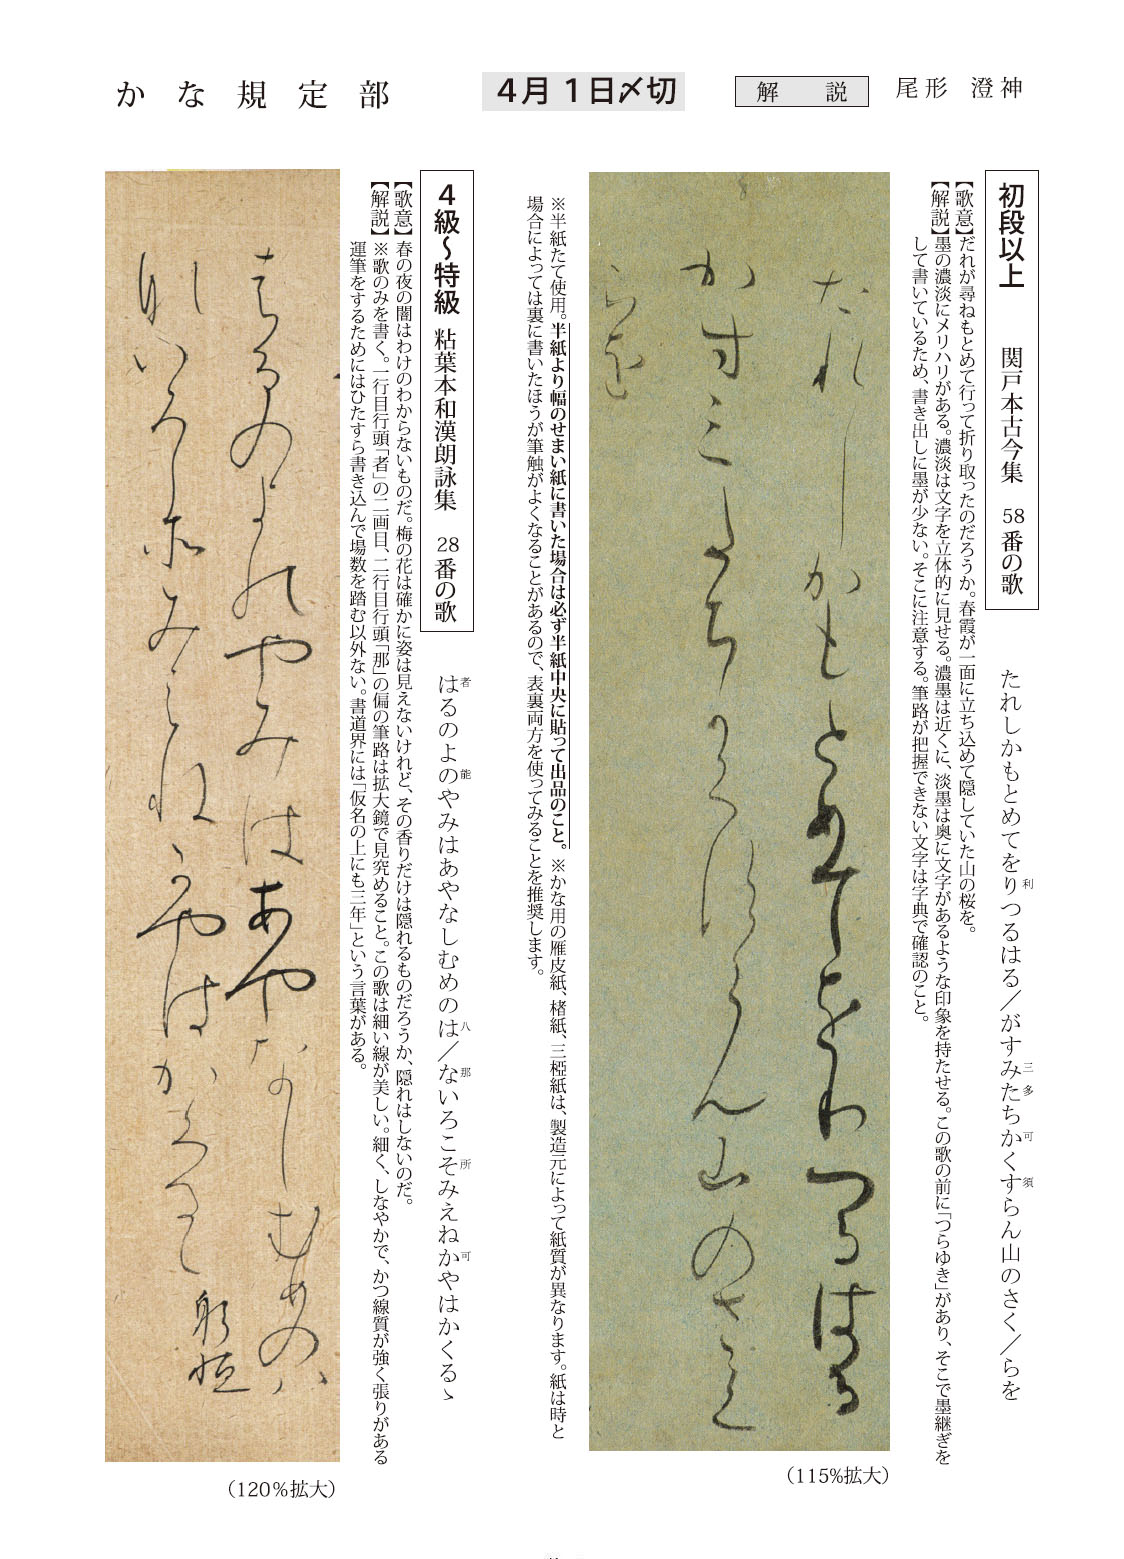 かな規定部
4月1日〆切
解説
尾形 澄神
初段以上 関戸本古今集 58番の歌
たれしかもとめてをり利つるはる／がすみ三た多ちか可くす須らん山のさく／らを
【歌意】だれが尋ねもとめて行って折り取ったのだろうか。春霞が一面に立ち込めて隠していた山の桜を。
【解説】墨の濃淡にメリハリがある。濃淡は文字を立体的に見せる。濃墨は近くに、淡墨は奥に文字があるような印象を持たせる。この歌の前に「つらゆき」があり、そこで墨継ぎを
して書いているため、書き出しに墨が少ない。そこに注意する。筆路が把握できない文字は字典で確認のこと。
たれしかもとめてをりつるはる
かすみたちかくすらん山のさく
らを
（115%拡大）
※半紙たて使用。半紙より幅のせまい紙に書いた場合は必ず半紙中央に貼って出品のこと。※かな用の雁皮紙、楮紙、三椏紙は、製造元によって紙質が異なります。紙は時と
場合によっては裏に書いたほうが筆触がよくなることがあるので、表裏両方を使ってみることを推奨します。
4級〜特級 粘葉本和漢朗詠集 28番の歌
は者るのよの能やみはあやなしむめのは八／な那いろこそ所みえねか可やはかくるゝ
【歌意】春の夜の闇はわけのわからないものだ。梅の花は確かに姿は見えないけれど、その香りだけは隠れるものだろうか、隠れはしないのだ。
【解説】※歌のみを書く。一行目行頭「者」の二画目、二行目行頭「那」の偏の筆路は拡大鏡で見究めること。この歌は細い線が美しい。細く、しなやかで、かつ線質が強く張りがある
運筆をするためにはひたすら書き込んで場数を踏む以外ない。書道界には「仮名の上にも三年」という言葉がある。
はるのよのやみはあやなしむめのは
ないろこそみえねかやはかくるゝ
躬恒
（120%拡大）